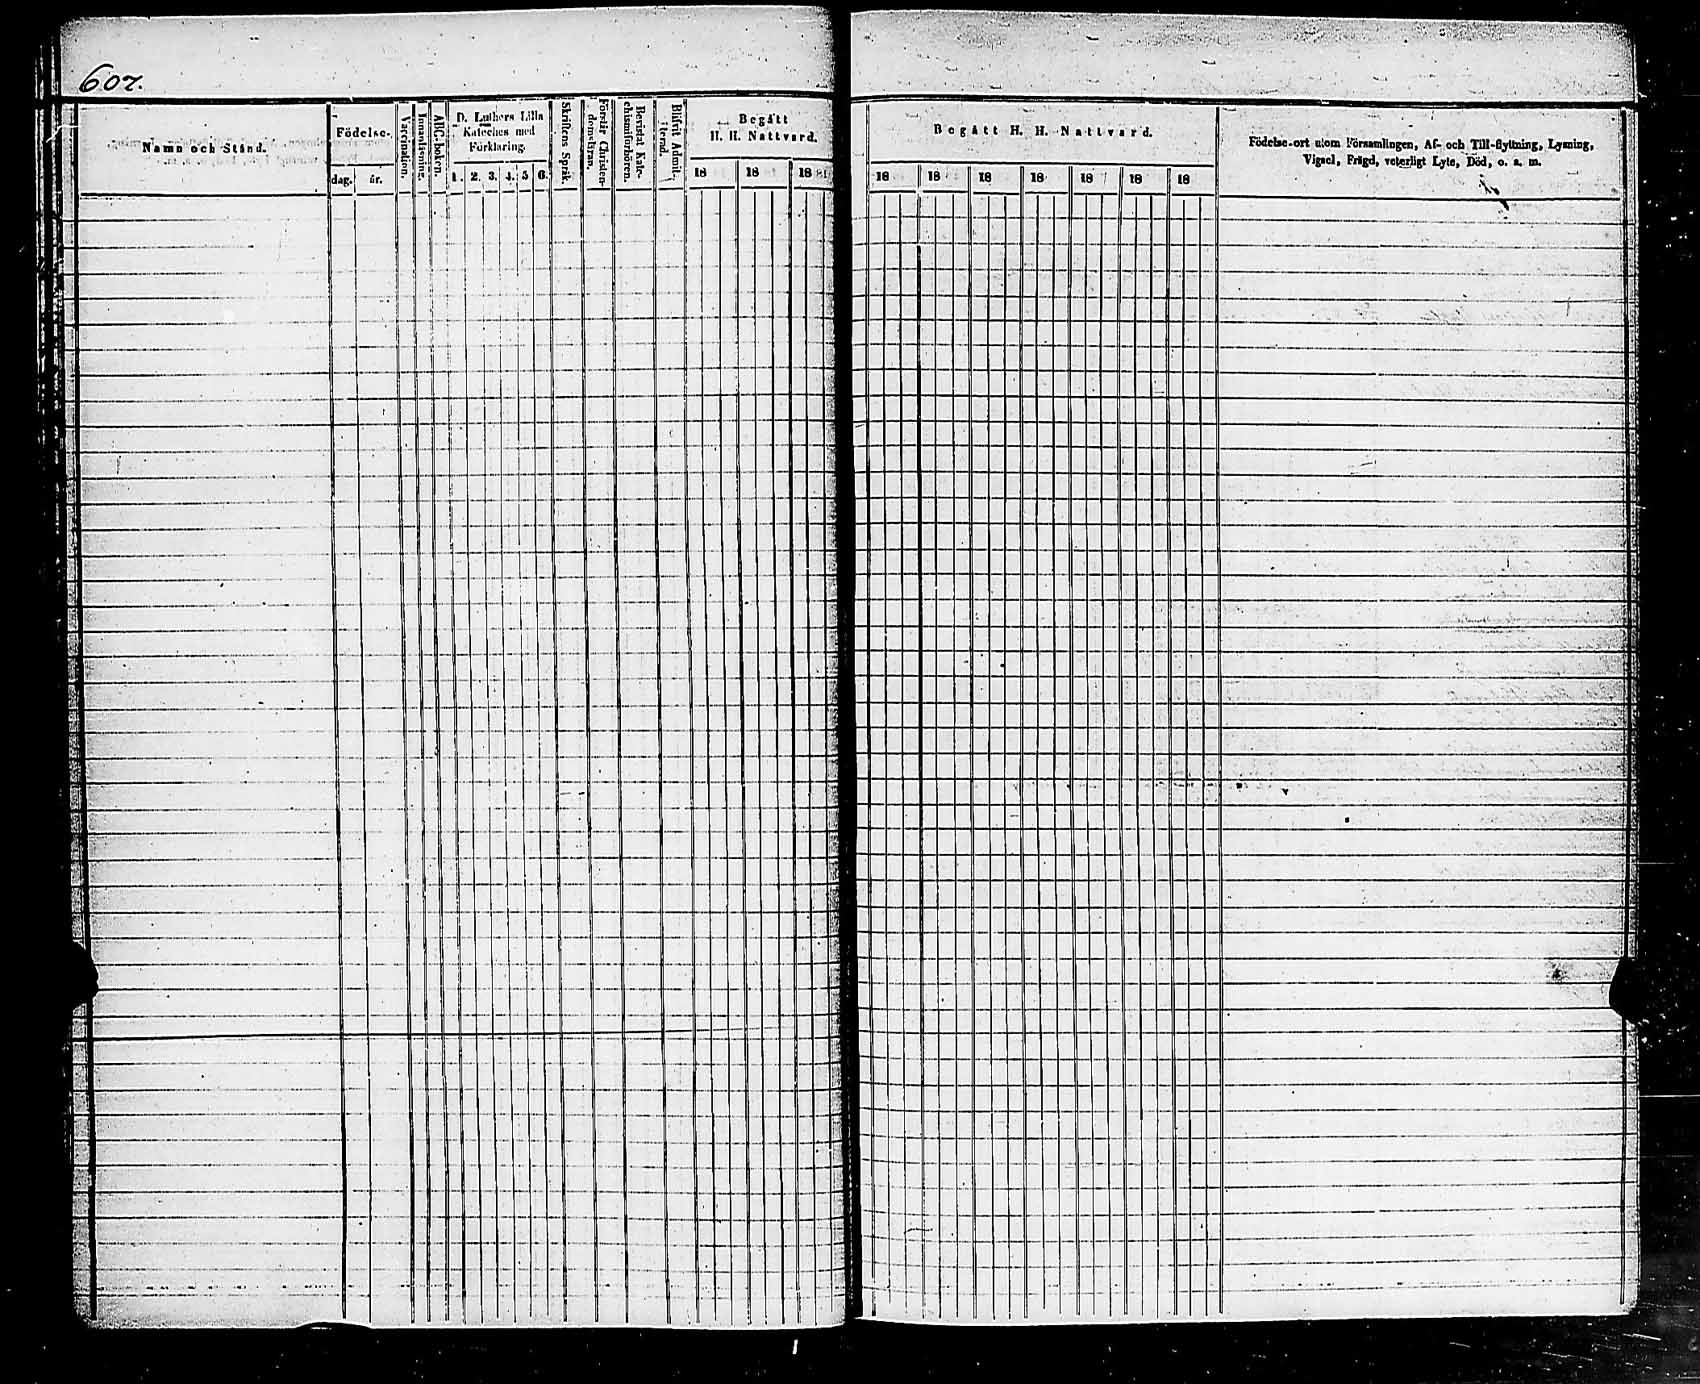 607.
Namn och Stånd.
Födelse-
dag.
år.
Vaccination.
Innanläsning.
ABC-boken.
D. Luthers Lilla
Kateches med
Förklaring.
1. 2. 3. 4. 5 6.
Skriftens Språk.
Förstår Christen-
domsläran.
Bevistat Kate-
chismiförhören.
Blifvit Admit-
terad.
Begått
H. H. Nattvard.
18 18 18
Begått H. H. Nattvard.
18 18 18 18 18 18 18
Födelse-ort utom Församlingen, Af- och Till-flyttning, Lysning,
Vigsel, Frägd, veterligt Lyte, Död, o. s. m.